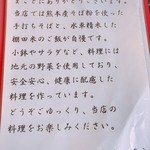 まことにありがとうございます。
当店では熊本産そば粉を使った
手打ちそばと、水車精米した
棚田米のご飯が自慢です。
小鉢やサラダなど、料理には
地元の野菜などを使用しており、
安全安心、健康に配慮した
料理を作っています。
どうぞごゆっくり、当店の
料理をお楽しみください。